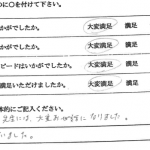 つに○を付けて下さい。
かがでしたか。 大変満足 満足
かがでしたか。 大変満足 満足
かがでしたか。 大変満足 満足
ピードはいかがでしたか 大変満足 満足
満足いただけましたか。 大変満足 満足
体的にご記入ください。
先生には、大変お世話になりました。
いました。